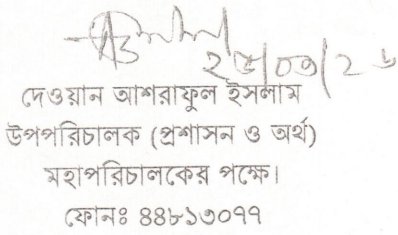 দেওয়ান আশরাফুল ইসলাম
উপপরিচালক (প্রশাসন ও অর্থ)
মহাপরিচালকের পক্ষে।
ফোনঃ ৪৪৮১৩০৭৭